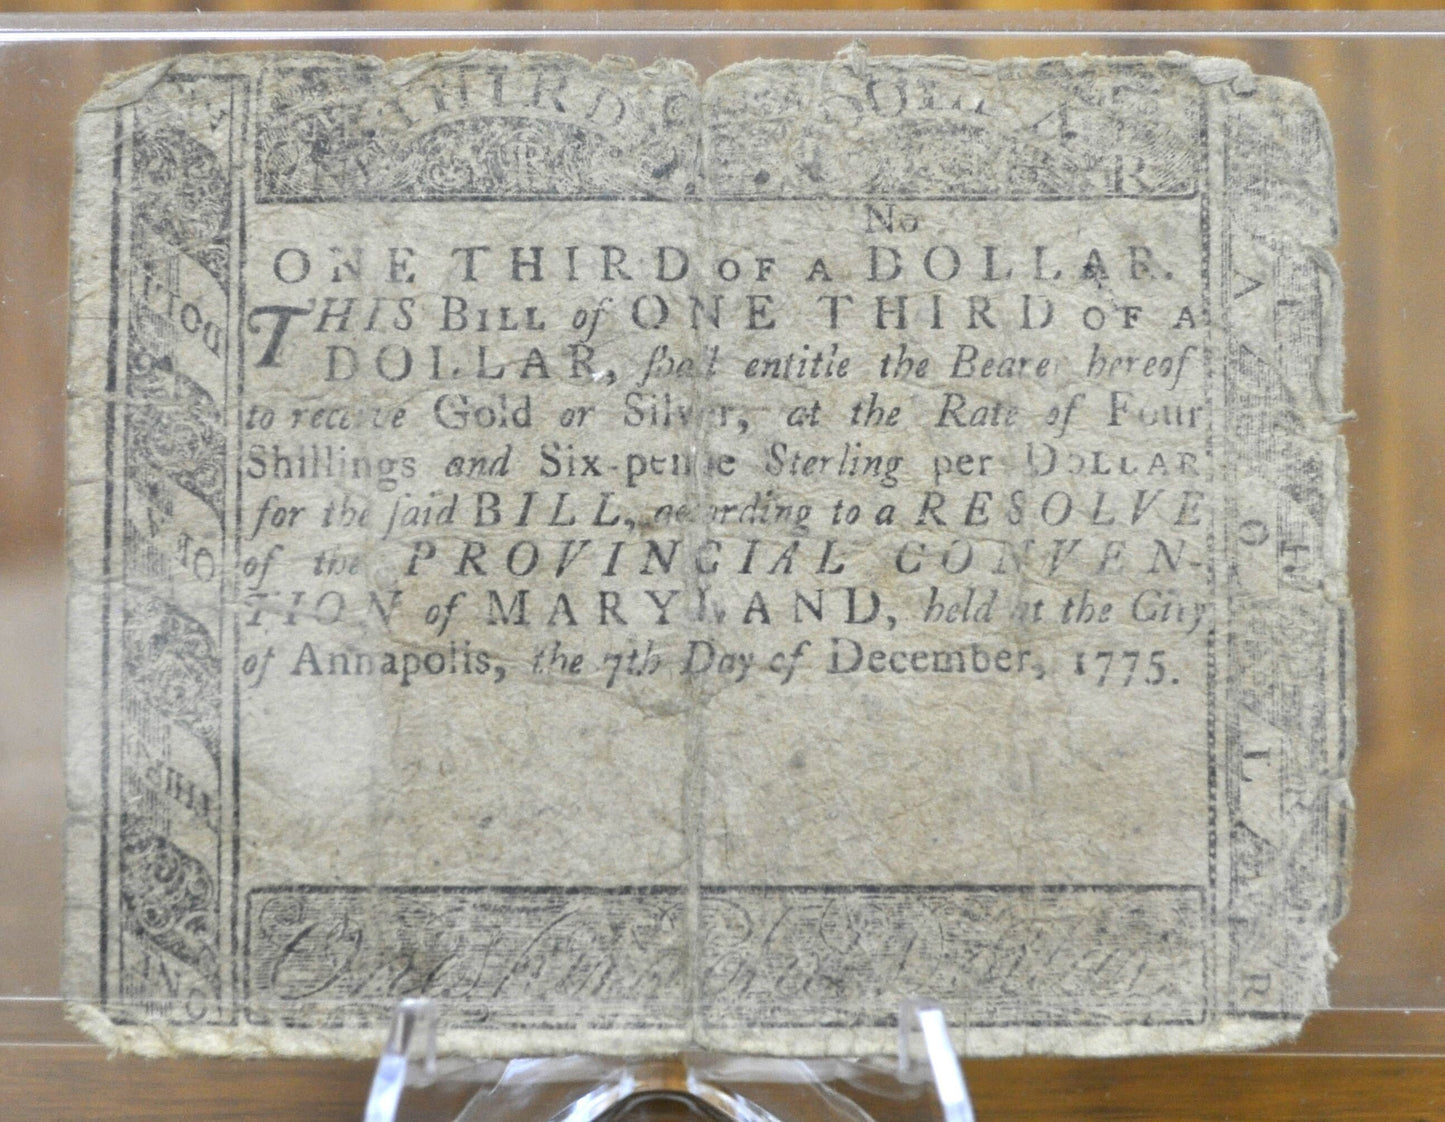 THIRD
DOLLAR
No
ONE THIRD OF A DOLLAR.
THIS BILL of ONE THIRD OF A
DOLLAR, ſhall entitle the Bearer hereof
to receive Gold or Silver, at the Rate of Four
Shillings and Six-pence Sterling per DOLLAR
for the ſaid BILL, according to a RESOLVE
of the PROVINCIAL CONVEN-
TION of MARYLAND, held at the City
of Annapolis, the 7th Day of December, 1775.
One Third of a Dollar.
DOLLAR